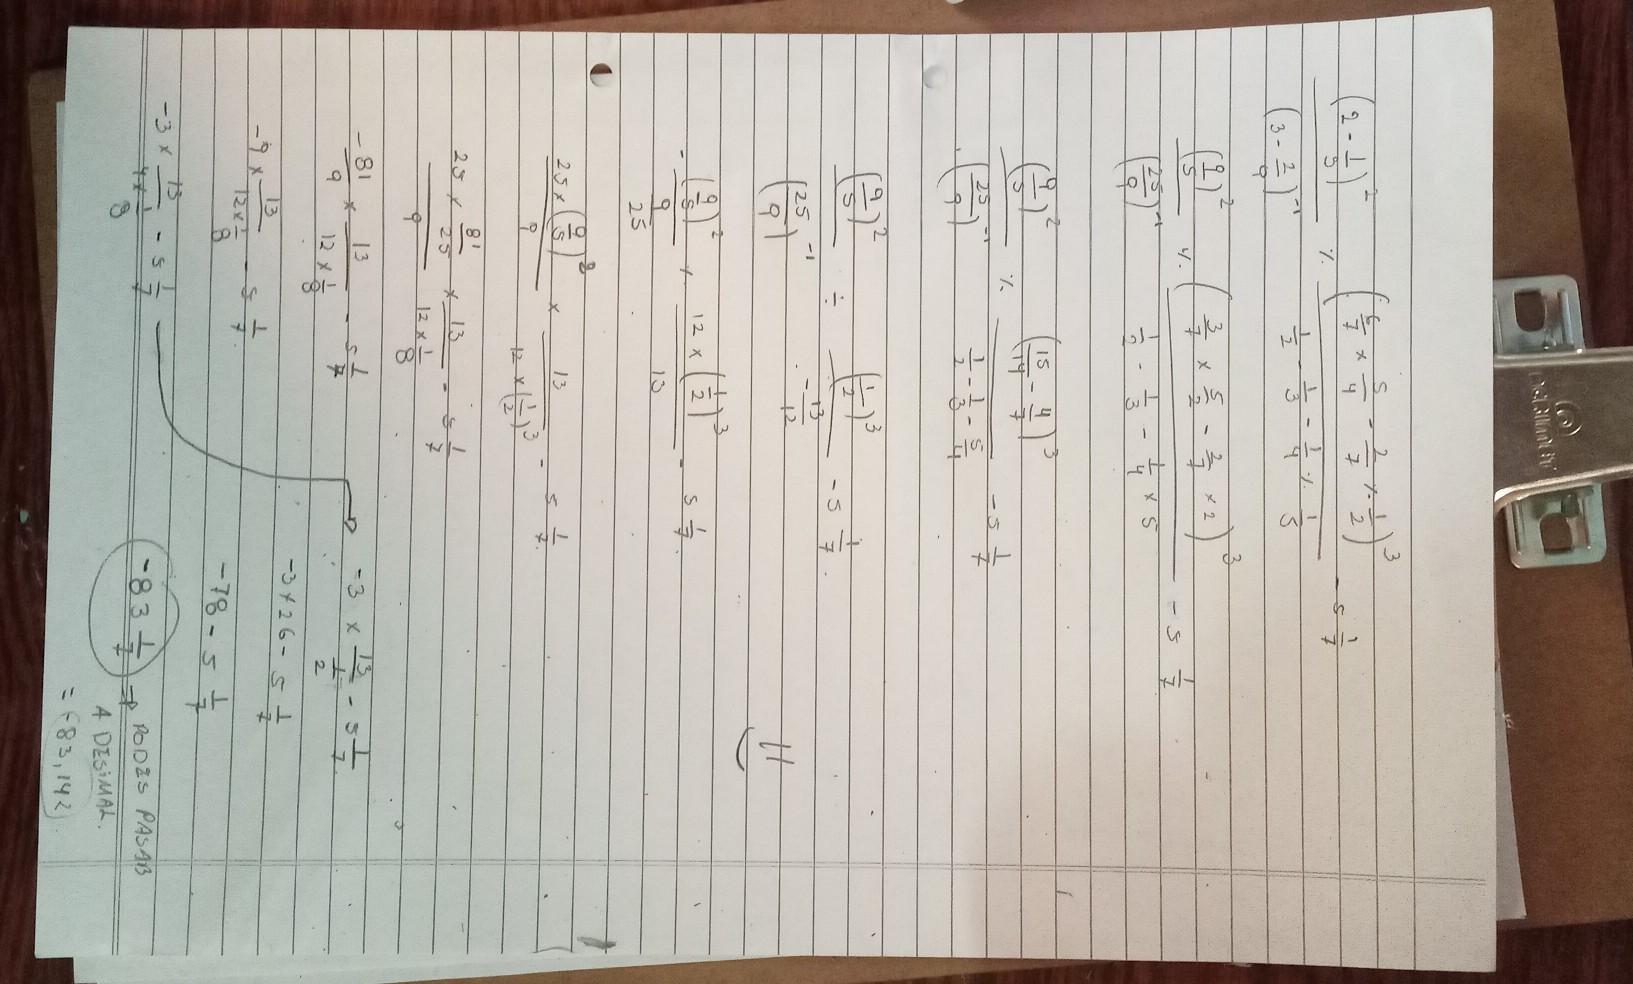 (2 - 1/5)² / (3 - 2/9)⁻¹ ⁒ (6/7 × 5/4 - 2/7 ⁒ 1/2)³ / 1/2 - 1/3 - 1/4 ⁒ 1/5 - 5 1/7
(9/5)² / (25/9)⁻¹ ⁒ (3/7 × 5/2 - 2/7 × 2)³ / 1/2 - 1/3 - 1/4 × 5 - 5 1/7
(9/5)² / (25/9)⁻¹ ⁒ (15/14 - 4/7)³ / 1/2 - 1/3 - 5/4 - 5 1/7
(9/5)² / (25/9)⁻¹ ÷ (1/2)³ / - 13/12 - 5 1/7
11)
- (9/5)² / 9/25 ⁒ 12 × (1/2)³ / 13 - 5 1/7
25 × (9/5)² / 9 × 13 / 12 × (1/2)³ - 5 1/7
25 × 81/25 / 9 × 13 / 12 × 1/8 - 5 1/7
-81/9 × 13 / 12 × 1/8 - 5 1/7
-9 × 13 / 12 × 1/8 - 5 1/7
-3 × 13 / 4 × 1/8 - 5 1/7
-3 × 13 / 1/2 - 5 1/7
-3 × 26 - 5 1/7
-78 - 5 1/7
-83 1/7 → PODES PASAR
A DESIMAL.
= -83,142